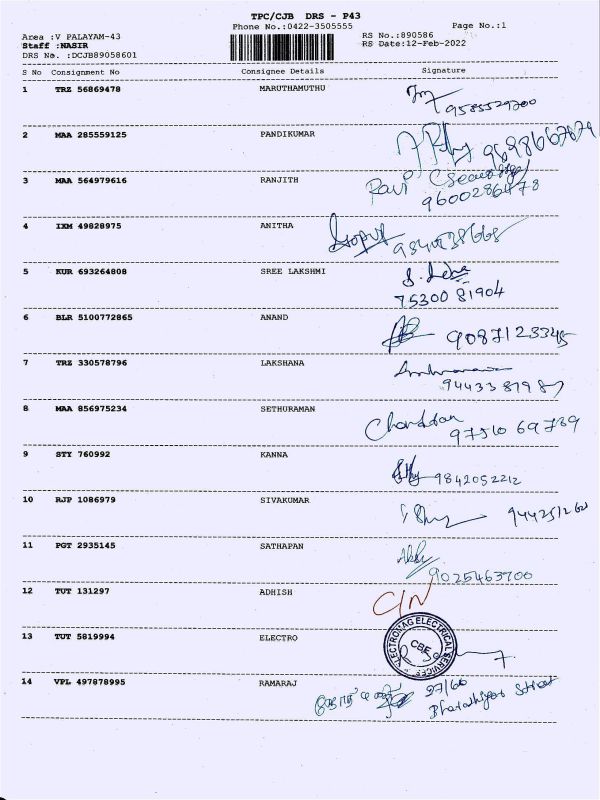 TPC/CJB DRS - P43
Phone No.:0422-3505555
Page No.:1
Area :V PALAYAM-43
RS No.:890586
Staff :NASIR
RS Date:12-Feb-2022
DRS No. :DCJB89058601
S No Consignment No Consignee Details Signature
1 TRZ 56869478 MARUTHAMUTHU
9585529200
2 MAA 285559125 PANDIKUMAR
3 MAA 564979616 RANJITH Ravi (Security)
9600286478
4 IXM 49828975 ANITHA
5 KUR 693264808 SREE LAKSHMI
75300 81904
6 BLR 5100772865 ANAND 9087123345
7 TRZ 330578796 LAKSHANA
8 MAA 856975234 SETHURAMAN
97510 69789
9 STY 760992 KANNA
9842052212
10 RJP 1086979 SIVAKUMAR
11 PGT 2935145 SATHAPAN
9025463700
12 TUT 131297 ADHISH C/N
13 TUT 5819994 ELECTRO ELECTROMAG ELECTRICAL SERVICES CBE
14 VPL 497878995 RAMARAJ 27/60
Street